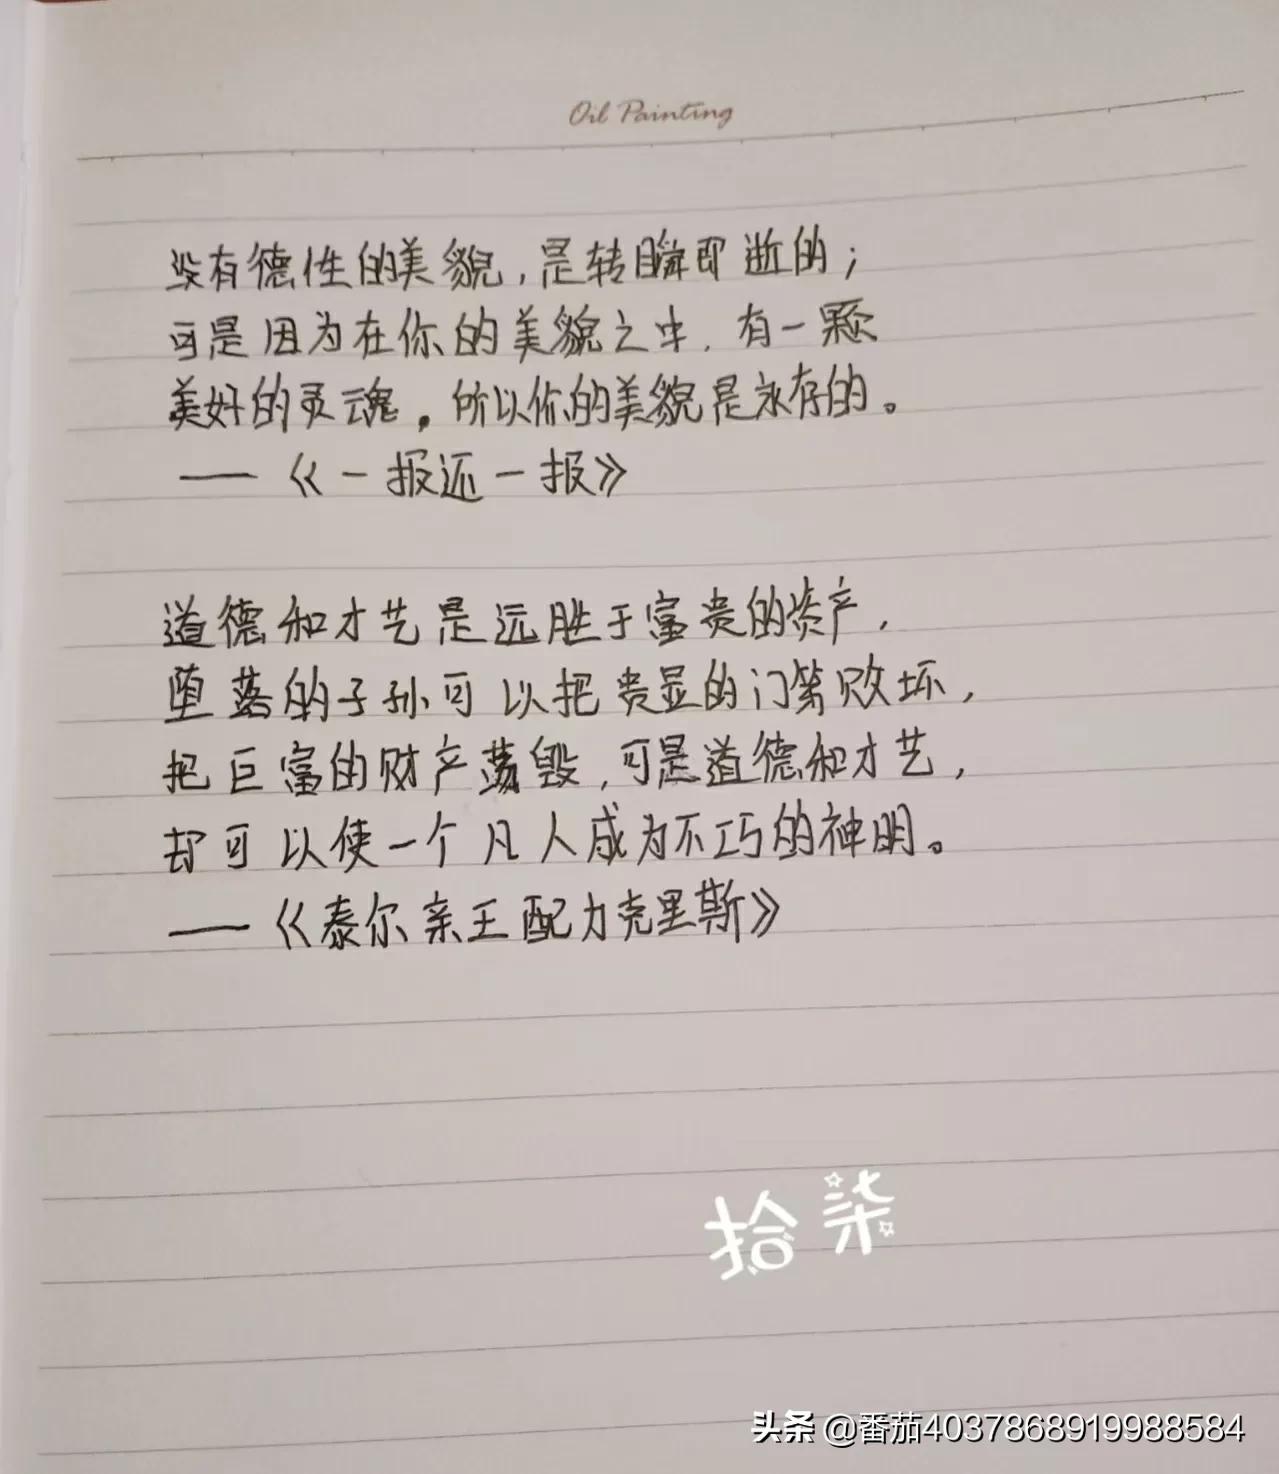 Oil Painting
没有德性的美貌，是转瞬即逝的；
可是因为在你的美貌之中，有一颗
美好的灵魂。所以你的美貌是永存的。
——《一报还一报》
道德和才艺是远胜于富贵的资产，
堕落的子孙可以把贵显的门第败坏，
把巨富的财产荡毁，可是道德和才艺，
却可以使一个凡人成为不巧的神明。
——《泰尔亲王配力克里斯》
拾柒
头条 @番茄4037868919988584